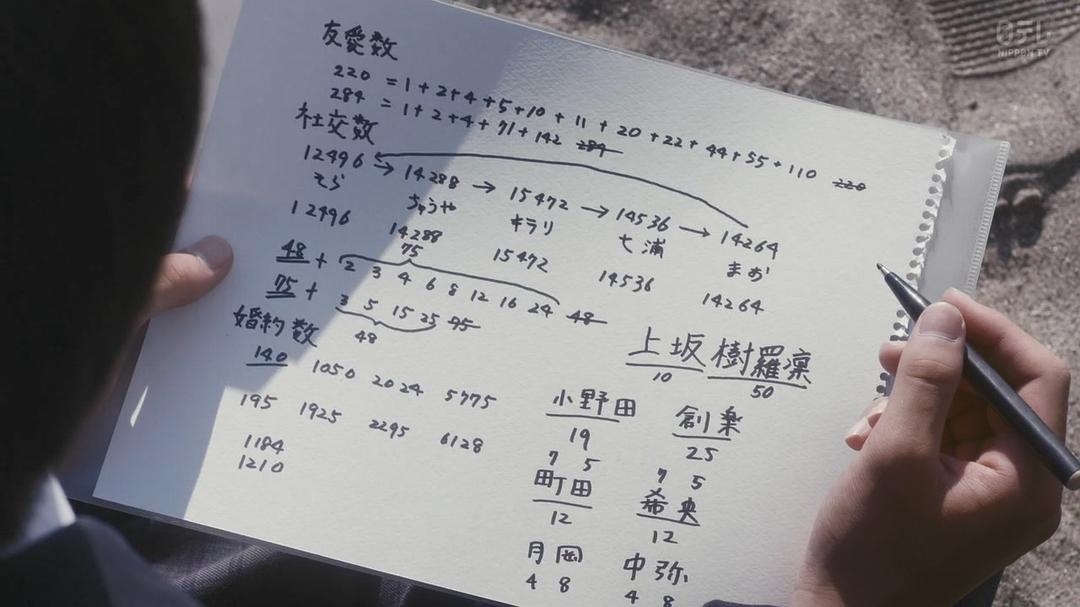 日テレ
NIPPON TV
友愛数
220 = 1 + 2 + 4 + 5 + 10 + 11 + 20 + 22 + 44 + 55 + 110 220
284 = 1 + 2 + 4 + 71 + 142 284
社交数
12496 → 14288 → 15472 → 14536 → 14264
そら ちゅうや キラリ 七浦 まお
12496 14288 15472 14536 14264
75
48 + 2 3 4 6 8 12 16 24 48
75 + 3 5 15 25 75
48
婚約数
140 1050 2024 5775
195 1925 2295 6128
1184
1210
上坂 樹羅凜
10 50
小野田 創楽
19 25
7 5 7 5
町田 希央
12 12
月岡 中弥
4 8 4 8